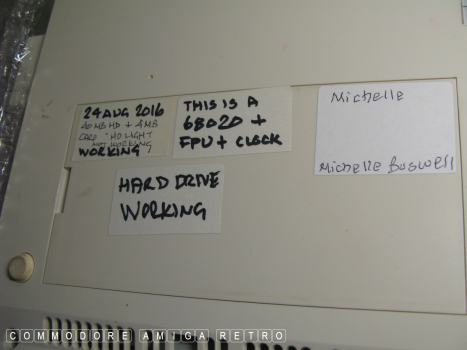 24 AUG 2016
40 MB HD + 4MB
CARD - HD LIGHT
NOT WORKING
WORKING
THIS IS A
68020 +
FPU + CLOCK
Michelle
Michelle Boswell
HARD DRIVE
WORKING
COMMODORE AMIGA RETRO